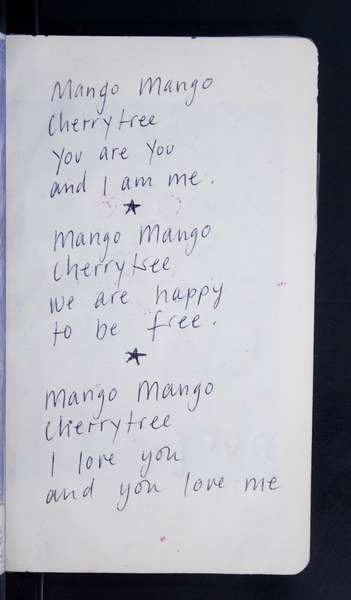 Mango Mango
Cherrytree
You are You
and I am me.
★
Mango Mango
Cherrytree
we are happy
to be free.
★
Mango Mango
Cherrytree
I love you
and you love me